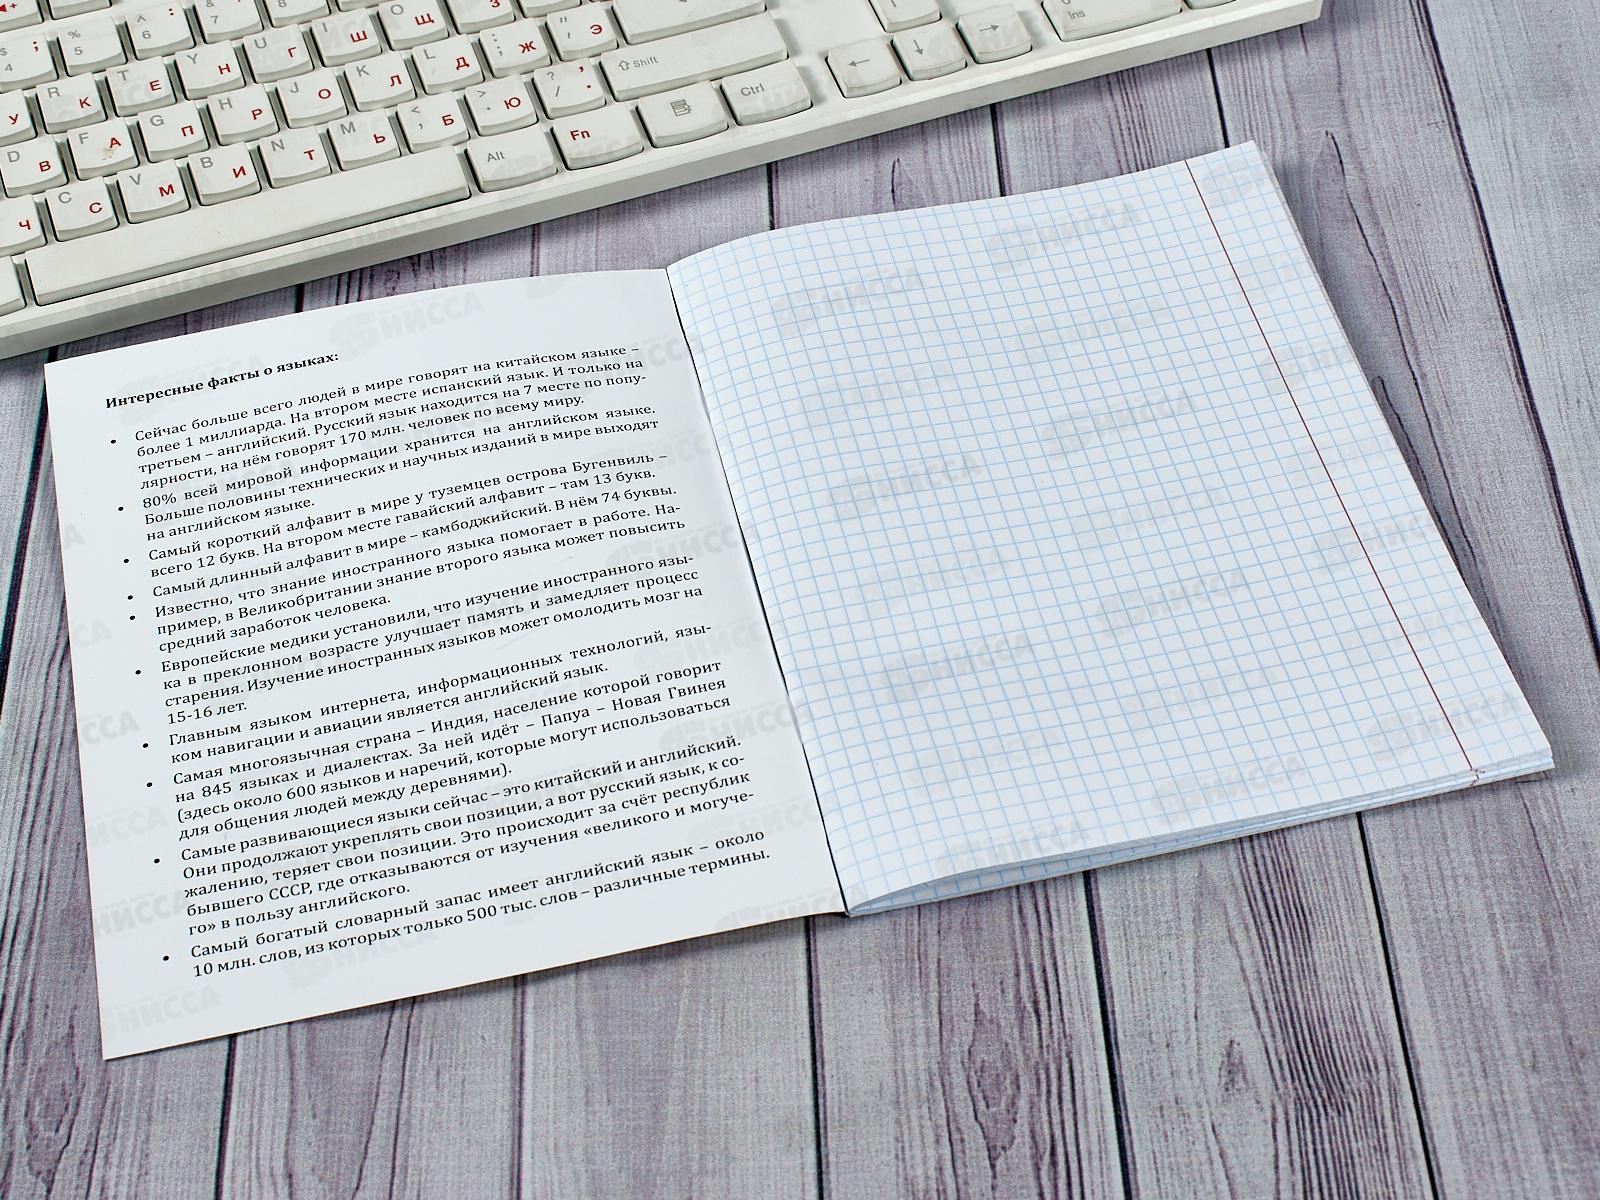 Интересные факты о языках:
• Сейчас больше всего людей в мире говорят на китайском языке –
более 1 миллиарда. На втором месте испанский язык. И только на
третьем – английский. Русский язык находится на 7 месте по попу-
лярности, на нём говорят 170 млн. человек по всему миру.
• 80% всей мировой информации хранится на английском языке.
Больше половины технических и научных изданий в мире выходят
на английском языке.
• Самый короткий алфавит в мире у туземцев острова Бугенвиль –
всего 12 букв. На втором месте гавайский алфавит – там 13 букв.
• Самый длинный алфавит в мире – камбоджийский. В нём 74 буквы.
• Известно, что знание иностранного языка помогает в работе. На-
пример, в Великобритании знание второго языка может повысить
средний заработок человека.
• Европейские медики установили, что изучение иностранного язы-
ка в преклонном возрасте улучшает память и замедляет процесс
старения. Изучение иностранных языков может омолодить мозг на
15-16 лет.
• Главным языком интернета, информационных технологий, язы-
ком навигации и авиации является английский язык.
• Самая многоязычная страна – Индия, население которой говорит
на 845 языках и диалектах. За ней идёт – Папуа – Новая Гвинея
(здесь около 600 языков и наречий, которые могут использоваться
для общения людей между деревнями).
• Самые развивающиеся языки сейчас – это китайский и английский.
Они продолжают укреплять свои позиции, а вот русский язык, к со-
жалению, теряет свои позиции. Это происходит за счёт республик
бывшего СССР, где отказываются от изучения «великого и могуче-
го» в пользу английского.
• Самый богатый словарный запас имеет английский язык – около
10 млн. слов, из которых только 500 тыс. слов – различные термины.
Shift
Ctrl
Alt
Fn
Ins
НИССА